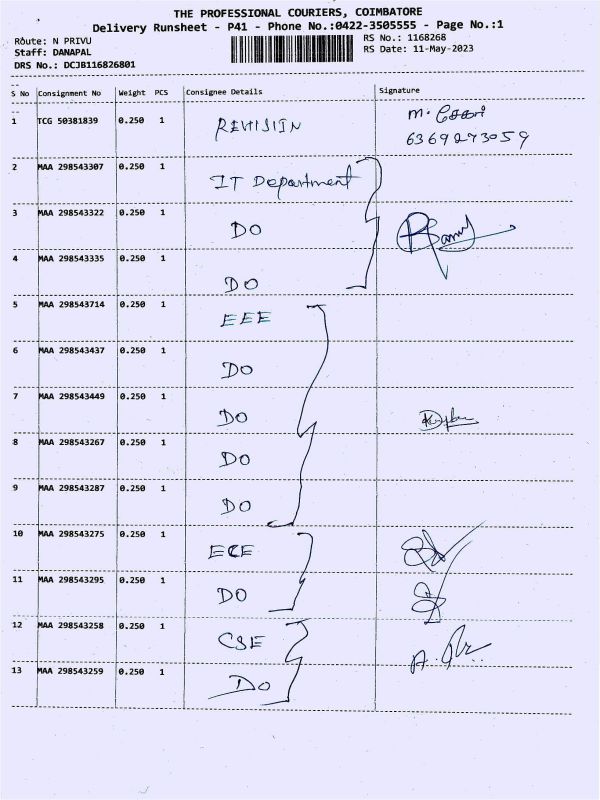 THE PROFESSIONAL COURIERS, COIMBATORE
Delivery Runsheet - P41 - Phone No.:0422-3505555 - Page No.:1
Route: N PRIVU
RS No.: 1168268
Staff: DANAPAL
RS Date: 11-May-2023
DRS No.: DCJB116826801
S No Consignment No Weight PCS Consignee Details Signature
1 TCG 50381839 0.250 1 M.
6369273059
2 MAA 298543307 0.250 1 IT Department
3 MAA 298543322 0.250 1 DO
4 MAA 298543335 0.250 1 DO
5 MAA 298543714 0.250 1 EEE
6 MAA 298543437 0.250 1 DO
7 MAA 298543449 0.250 1 DO
8 MAA 298543267 0.250 1 DO
9 MAA 298543287 0.250 1 DO
10 MAA 298543275 0.250 1 ECE
11 MAA 298543295 0.250 1 DO
12 MAA 298543258 0.250 1 CSE
13 MAA 298543259 0.250 1 DO